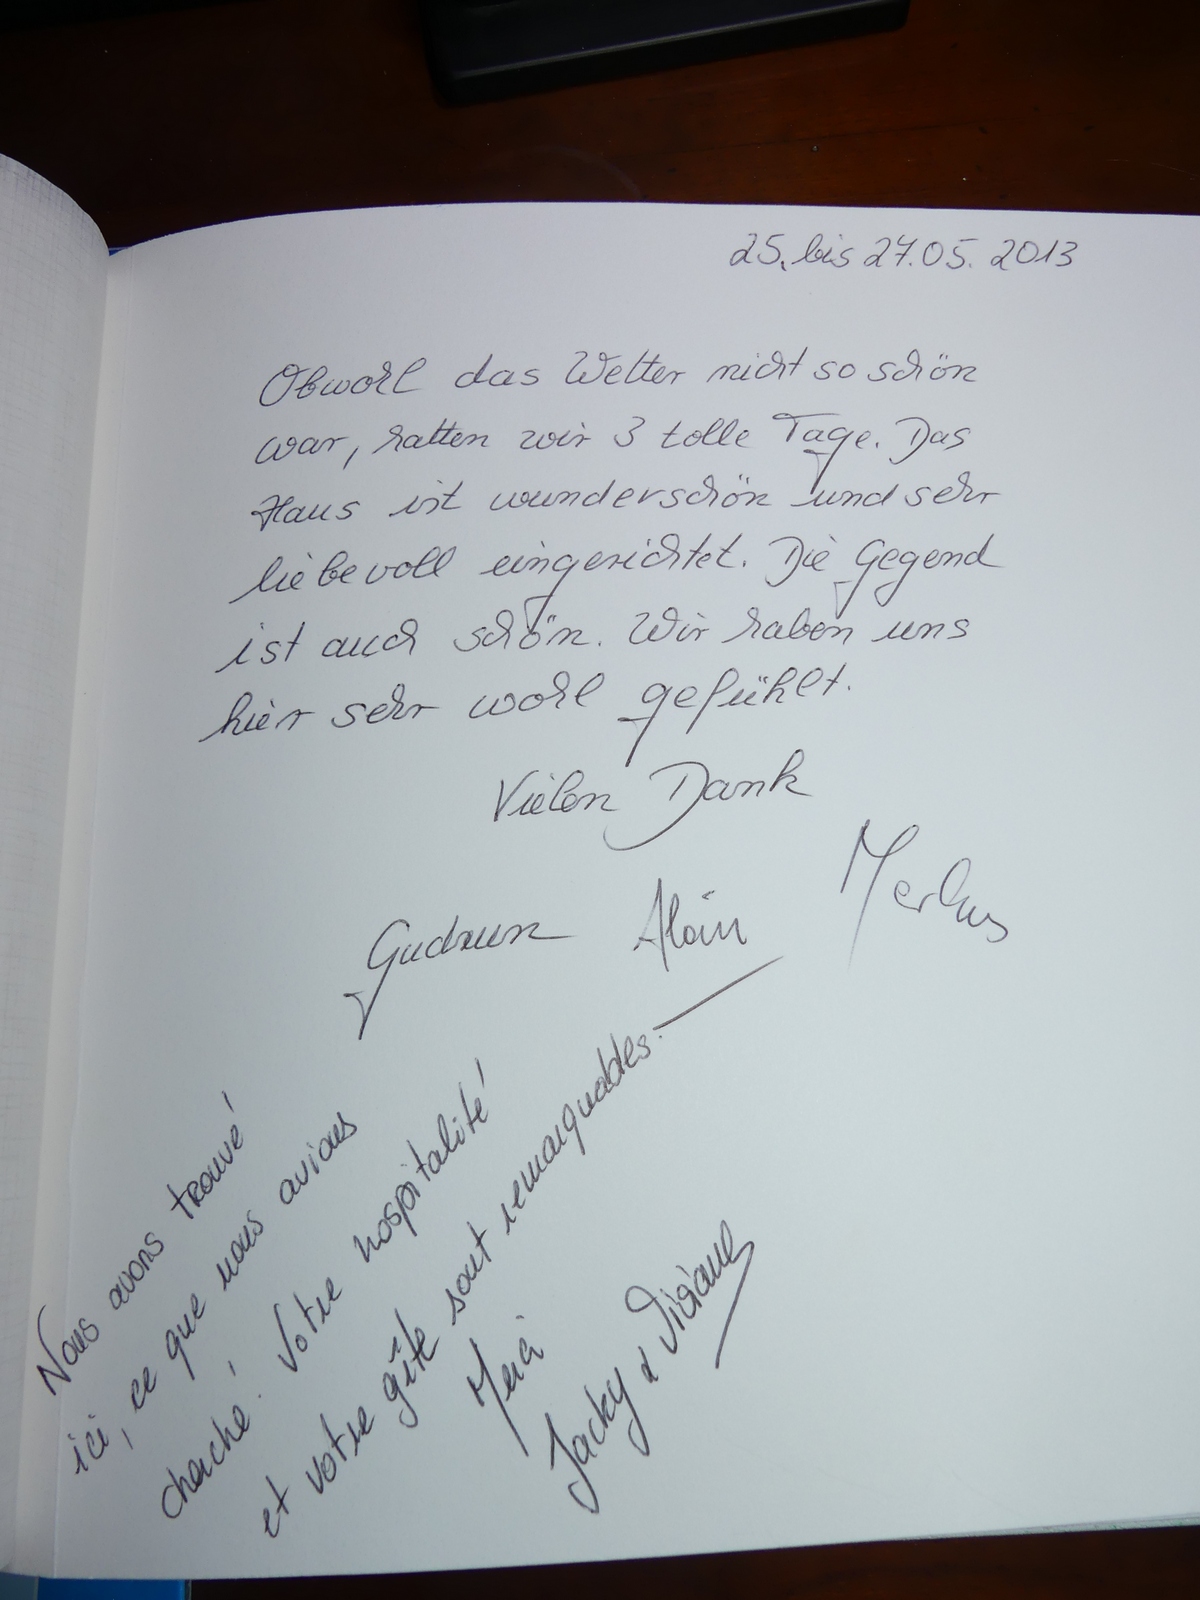 25. bis 27.05. 2013
Obwohl das Wetter nicht so schön
war, hatten wir 3 tolle Tage. Das
Haus ist wunderschön und sehr
liebevoll eingerichtet. Die Gegend
ist auch schön. Wir haben uns
hier sehr wohl gefühlt.
Vielen Dank
Gudrun Alain Markus
Nous avons trouvé
ici, ce que nous avions
cherché! Votre hospitalité
et votre gîte sont remarquables.
Merci
Jacky & Viviane